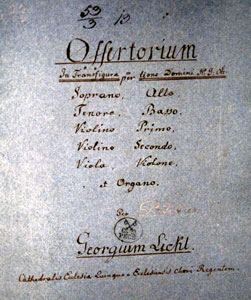 53
3
Offertorium
In Transfigura per tione Domini N. J. Ch.
Soprano, Alto
Tenore, Basso,
Violino Primo,
Violino Secondo,
Viola Violone,
et Organo.
Del
Georgium Lickl.
Cathedralis Ecclesia Quinque-Ecclesiensis Chori Regentem